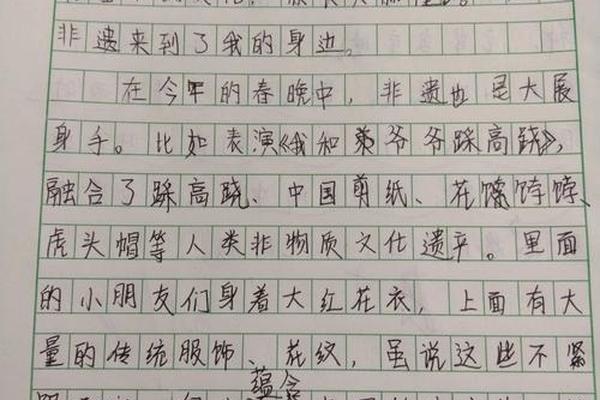 非遗来到了我的身边。
在今年的春晚中，非遗也是大展
身手。比如表演《我和爷爷踩高跷》，
融合了踩高跷、中国剪纸、花馍饽饽、
虎头帽等人类非物质文化遗产。里面
的小朋友们身着大红花衣，上面有大
量的传统服饰、花纹，虽说这些不紧
蕴含